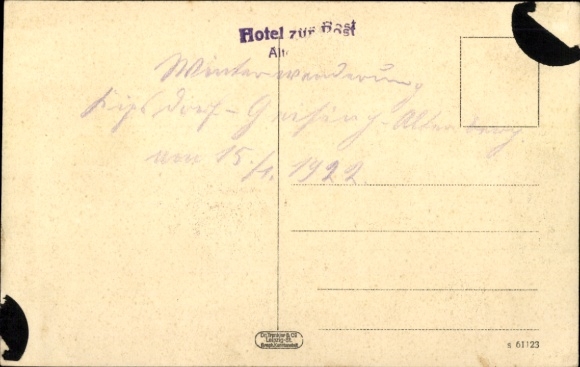 Hotel zur Post
Al
Winterwanderung
Kipsdorf - Geising - Altenberg
am 15./1. 1922.
Dr. Trenkler & Co
Leipzig-St.
s 61123